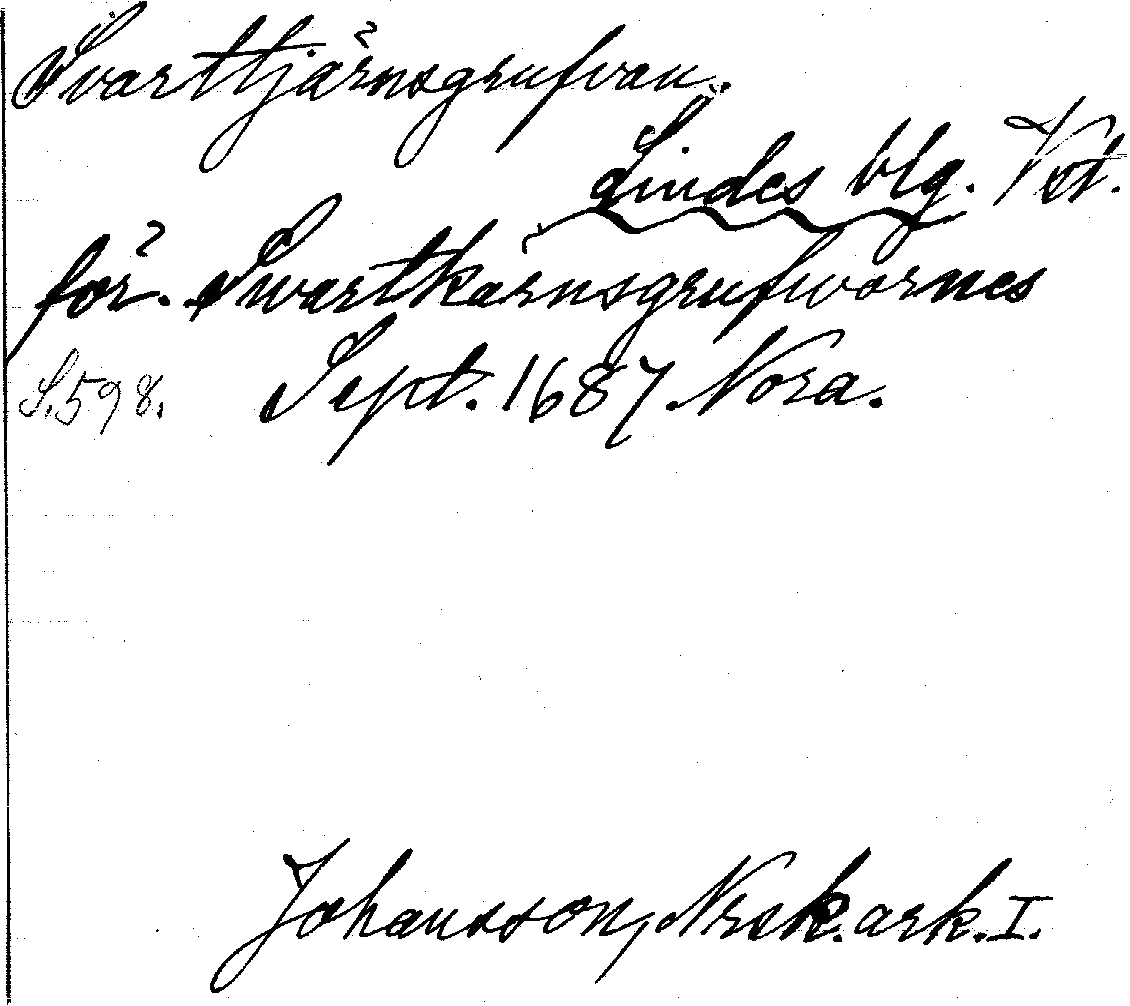 Svarttjärnsgrufvan.
Lindes blg. Vst.
för. Swartkärnsgrufwornes
S. 598. Sept. 1687. Nora.
Johansson, Nrsk. ark. I.